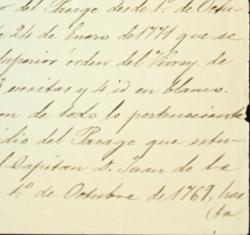 or del Parage desde 1º de Octu-
e 24 de Enero de 1771 que se
superior órden del Virrey de
escritas y 4 id en blanco.
on de todo lo perteneciente
idio del Parage que estu-
l Capitan D. Juan de la
1º de Octubre de 1767, has
ta